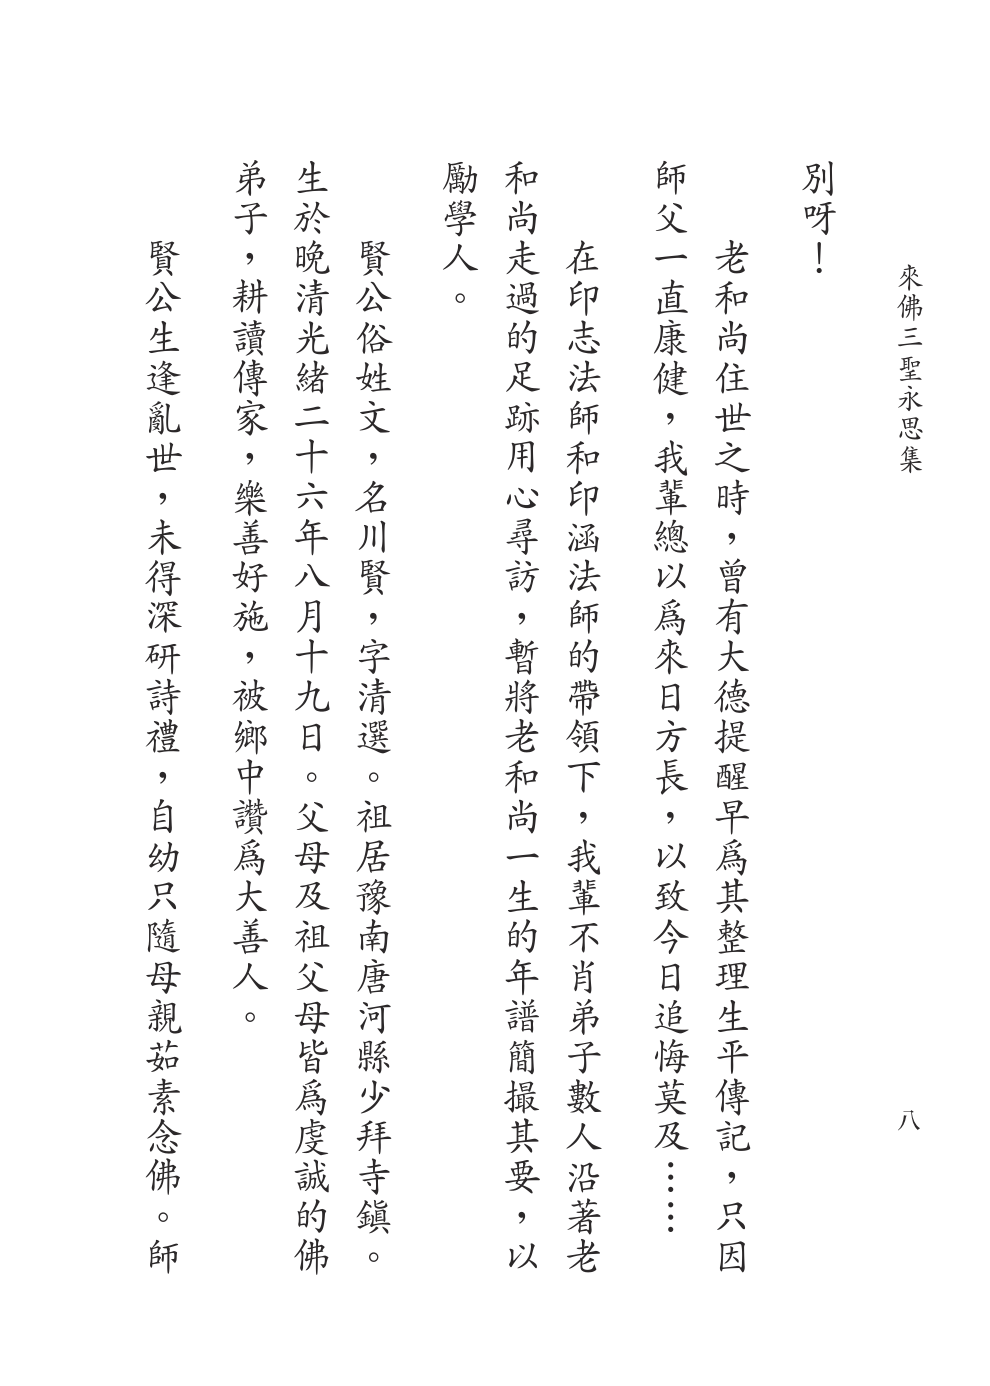 來佛三聖永思集
八
別呀！
老和尚住世之時，曾有大德提醒早爲其整理生平傳記，只因
師父一直康健，我輩總以爲來日方長，以致今日追悔莫及……
在印志法師和印涵法師的帶領下，我輩不肖弟子數人沿著老
和尚走過的足跡用心尋訪，暫將老和尚一生的年譜簡撮其要，以
勵學人。
賢公俗姓文，名川賢，字清選。祖居豫南唐河縣少拜寺鎮。
生於晚清光緒二十六年八月十九日。父母及祖父母皆爲虔誠的佛
弟子，耕讀傳家，樂善好施，被鄉中讚爲大善人。
賢公生逢亂世，未得深研詩禮，自幼只隨母親茹素念佛。師